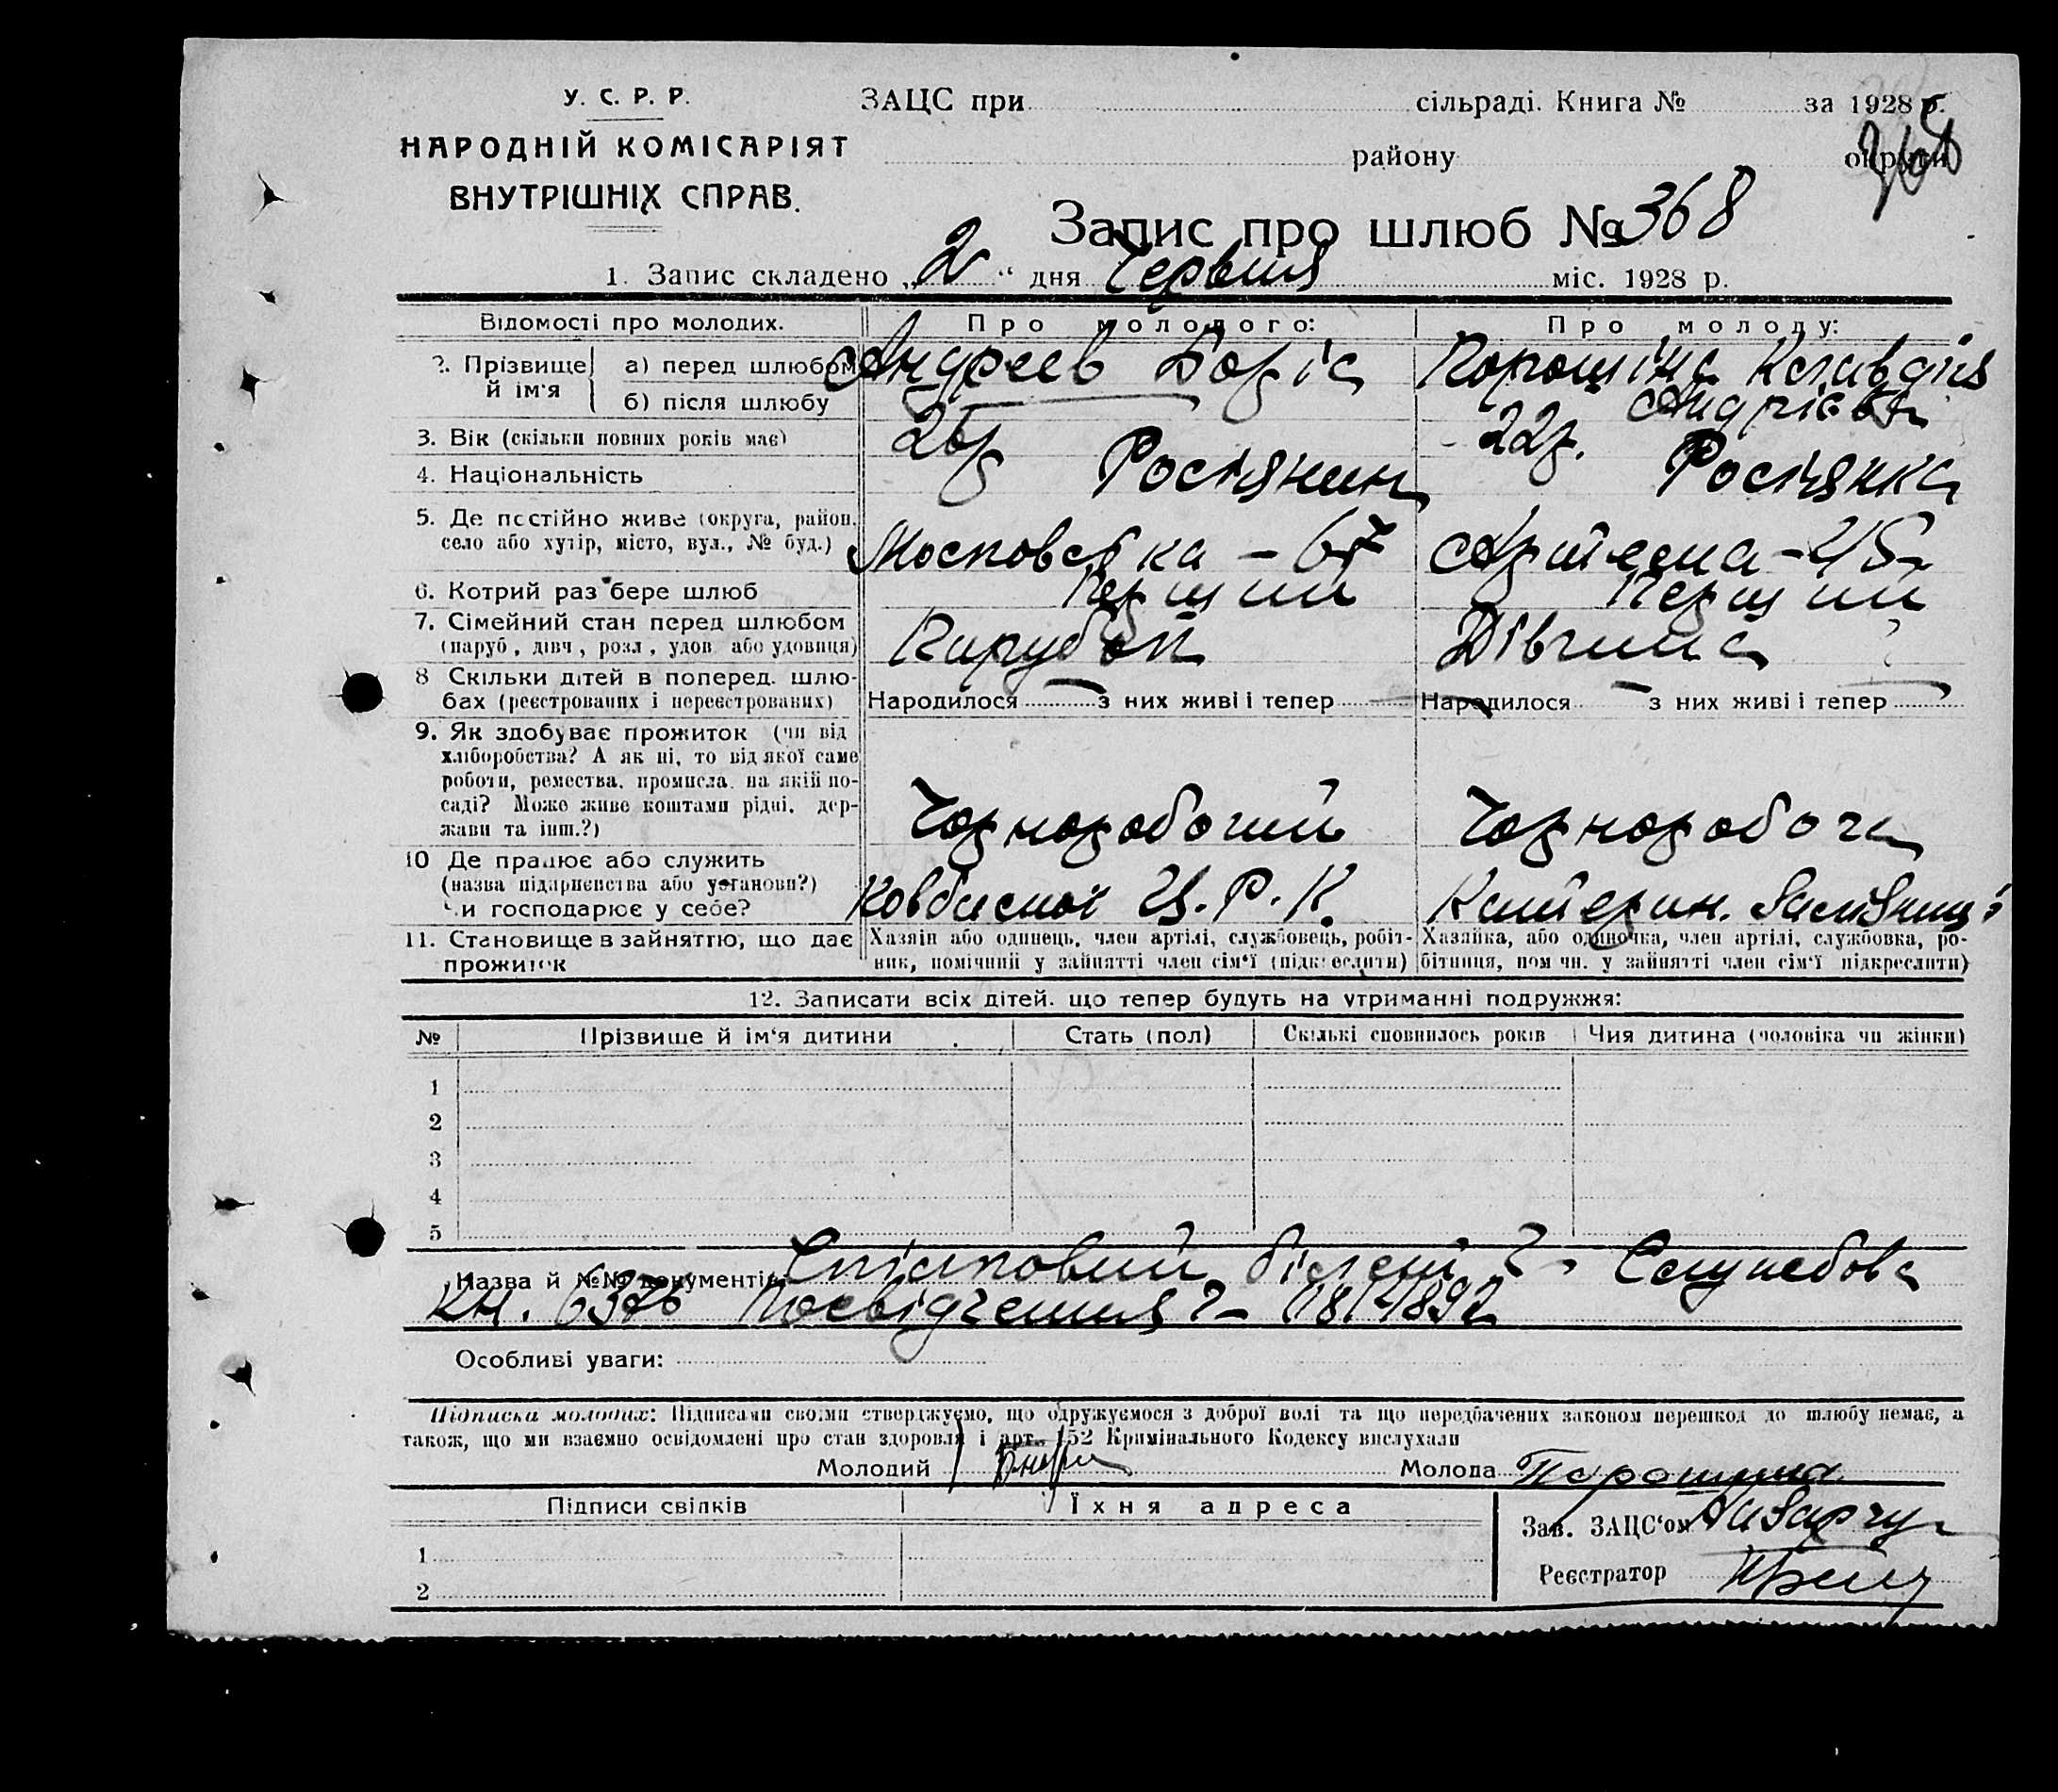 У. С. Р. Р.
НАРОДНІЙ КОМІСАРІЯТ
ВНУТРІШНІХ СПРАВ.
ЗАЦС при сільраді. Книга № за 1928 р.
району округи
368
Запис про шлюб № 368
1. Запис складено „2“ дня Червня міс. 1928 р.
Відомості про молодих. Про молодого: Про молоду:
2. Прізвище й ім'я а) перед шлюбом Андреев Боріс Порошіна Клавдія
б) після шлюбу Андрієва
3. Вік (скільки повних років має) 26р 22р.
4. Національність Росіянин Росіянка
5. Де постійно живе (округа, район,
село або хутір, місто, вул., № буд.) Московська - 67 Артема - 45
6. Котрий раз бере шлюб Перший Перший
7. Сімейний стан перед шлюбом
(паруб, дівч, розл, удов або удовиця) Парубок Дівчина
8 Скільки дітей в поперед. шлю-
бах (реєстрованих і нереєстрованих) Народилося з них живі і тепер Народилося з них живі і тепер
9. Як здобуває прожиток (чи від
хліборобства? А як ні, то від якої саме
роботи, ремества, промисла, на якій по-
саді? Може живе коштами рідні, дер-
жави та інш.?) Чорноробочий Чорнороboча
10 Де працює або служить
(назва підприємства або установи?)
Чи господарює у себе? Ковбасної Ц.Р.К. Катерин. Залізниці
11. Становище в зайняттю, що дає
прожиток
Хазяїн або одинець, член артілі, службовець, робіт-
ник, помічний у зайнятті член сім'ї (підкреслити)
Хазяйка, або одиночка, член артілі, службовка, ро-
бітниця, пом чн. у зайнятті член сім'ї підкреслити)
12. Записати всіх дітей. що тепер будуть на утриманні подружжя:
№ Прізвище й ім'я дитини Стать (пол) Скількі сповнилось років Чия дитина (чоловіка чи жінки)
1
2
3
4
5
Назва й №№ документів: Спілковий білет Служебова
кн. 6376 Посвідчення 181/1892
Особливі уваги:
Підписка молодих: Підписами своїми стверджуємо, що одружуємося з доброї волі та що передбачених законом перешкод до шлюбу немає, а
також, що ми взаємно освідомлені про стан здоровля і арт. 152 Кримінального Кодексу вислухали
Молодий Молода Порошина
Підписи свідків Їхня адреса
Зав. ЗАЦС'ом
1
Реєстратор
2